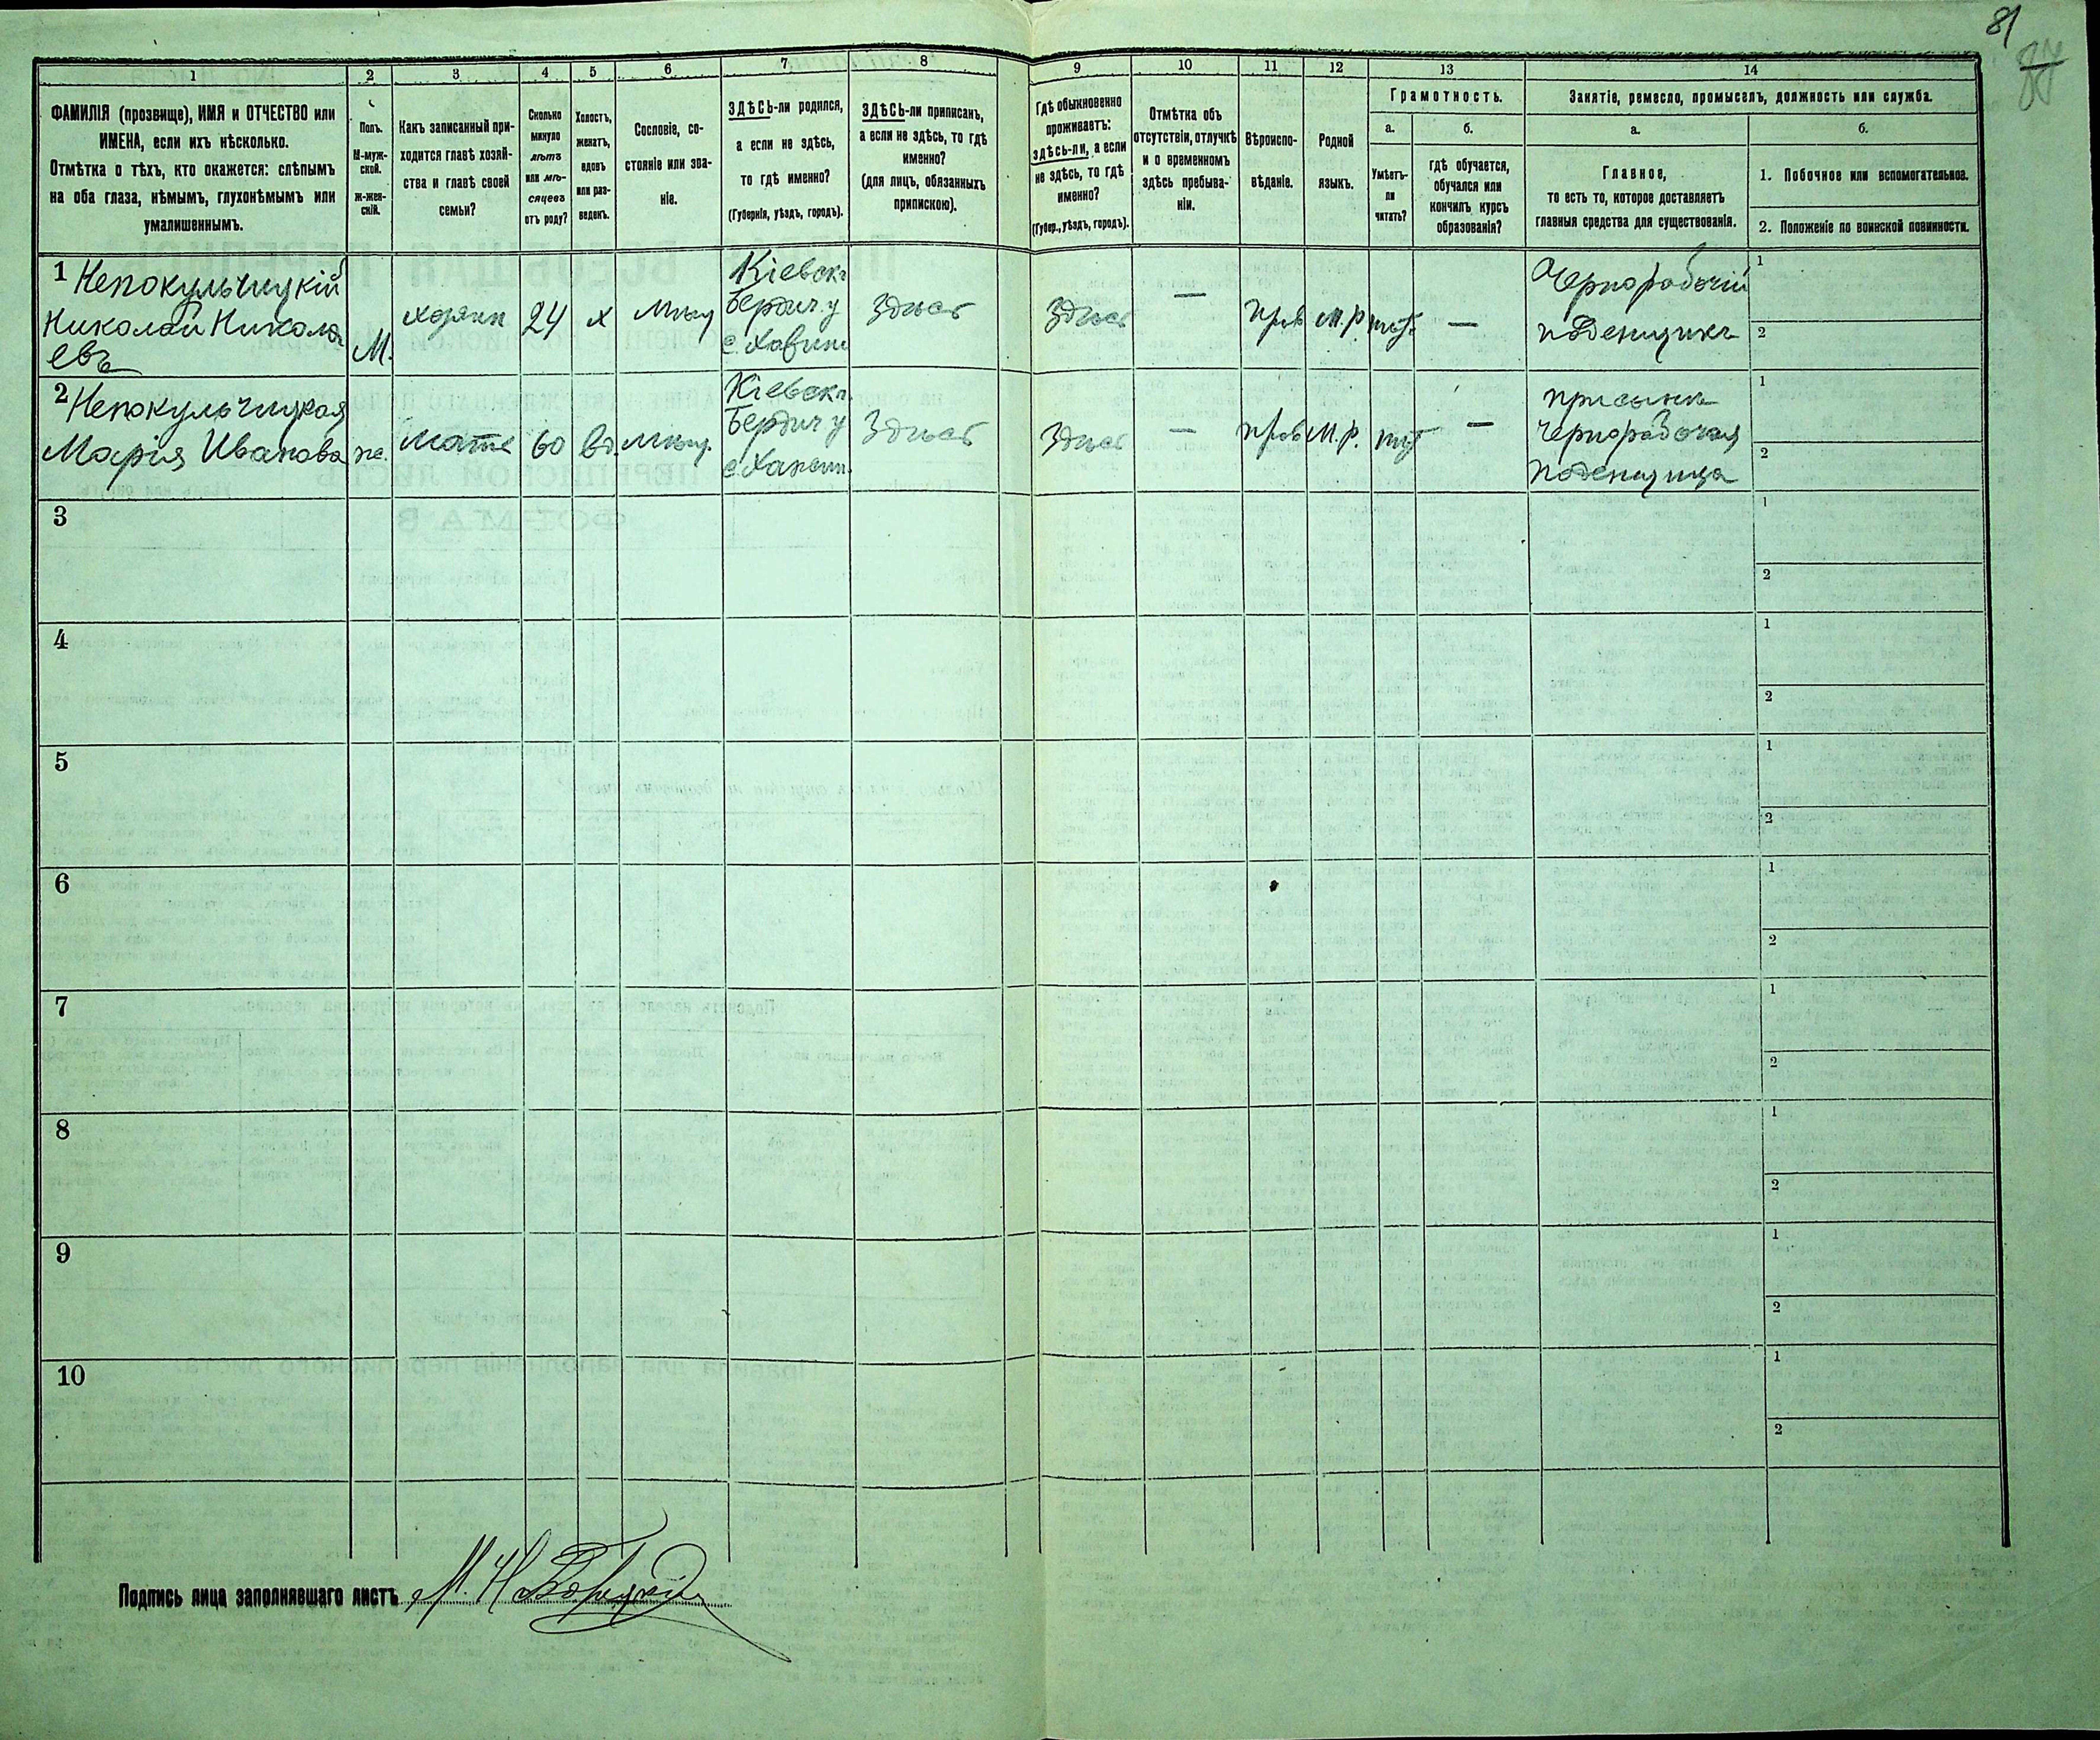 81
1
2
3
4
5
6
7
8
9
10
11
12
13
14
ФАМИЛІЯ (прозвище), ИМЯ и ОТЧЕСТВО или
ИМЕНА, если ихъ нѣсколько.
Отмѣтка о тѣхъ, кто окажется: слѣпымъ
на оба глаза, нѣмымъ, глухонѣмымъ или
умалишеннымъ.
Полъ.
М-муж-
ской.
ж-жен-
скій.
Какъ записанный при-
ходится главѣ хозяй-
ства и главѣ своей
семьи?
Сколько
минуло
лѣтъ
или мѣ-
сяцевъ
отъ роду?
Холостъ,
женатъ,
вдовъ
или раз-
веденъ.
Сословіе, со-
стояніе или зва-
ніе.
ЗДѢСЬ-ли родился,
а если не здѣсь,
то гдѣ именно?
(Губернія, уѣздъ, городъ).
ЗДѢСЬ-ли приписанъ,
а если не здѣсь, то гдѣ
именно?
(для лицъ, обязанныхъ
припискою).
Гдѣ обыкновенно
проживаетъ:
здѣсь-ли, а если
не здѣсь, то гдѣ
именно?
(Губер., уѣздъ, городъ).
Отмѣтка объ
отсутствіи, отлучкѣ
и о временномъ
здѣсь пребыва-
ніи.
Вѣроиспо-
вѣданіе.
Родной
языкъ.
Грамотность.
а.
б.
Умѣетъ-
ли
читать?
гдѣ обучается,
обучался или
кончилъ курсъ
образованія?
Занятіе, ремесло, промыселъ, должность или служба.
а.
б.
Главное,
то есть то, которое доставляетъ
главныя средства для существованія.
1. Побочное или вспомогательное.
2. Положеніе по воинской повинности.
1 Непокульчицкій
Николай Никола
евъ
М.
хозяин
24
х
Мѣщ
Кіевск
Бердич у
с.
Здѣсь
Здѣсь
—
прав
М.Р.
нѣт
—
Чернорабочій
поденщикъ
1
2
2 Непокульчицкая
Марія Иванова
ж.
мать
60
вд.
Мѣщ.
Кіевск
Бердич у
с.
Здѣсь
Здѣсь
—
прав
М.Р.
нѣт
—
при сынѣ
чернорабочая
поденщица
1
2
3
1
2
4
1
2
5
1
2
6
1
2
7
1
2
8
1
2
9
1
2
10
1
2
Подпись лица заполнявшаго листъ